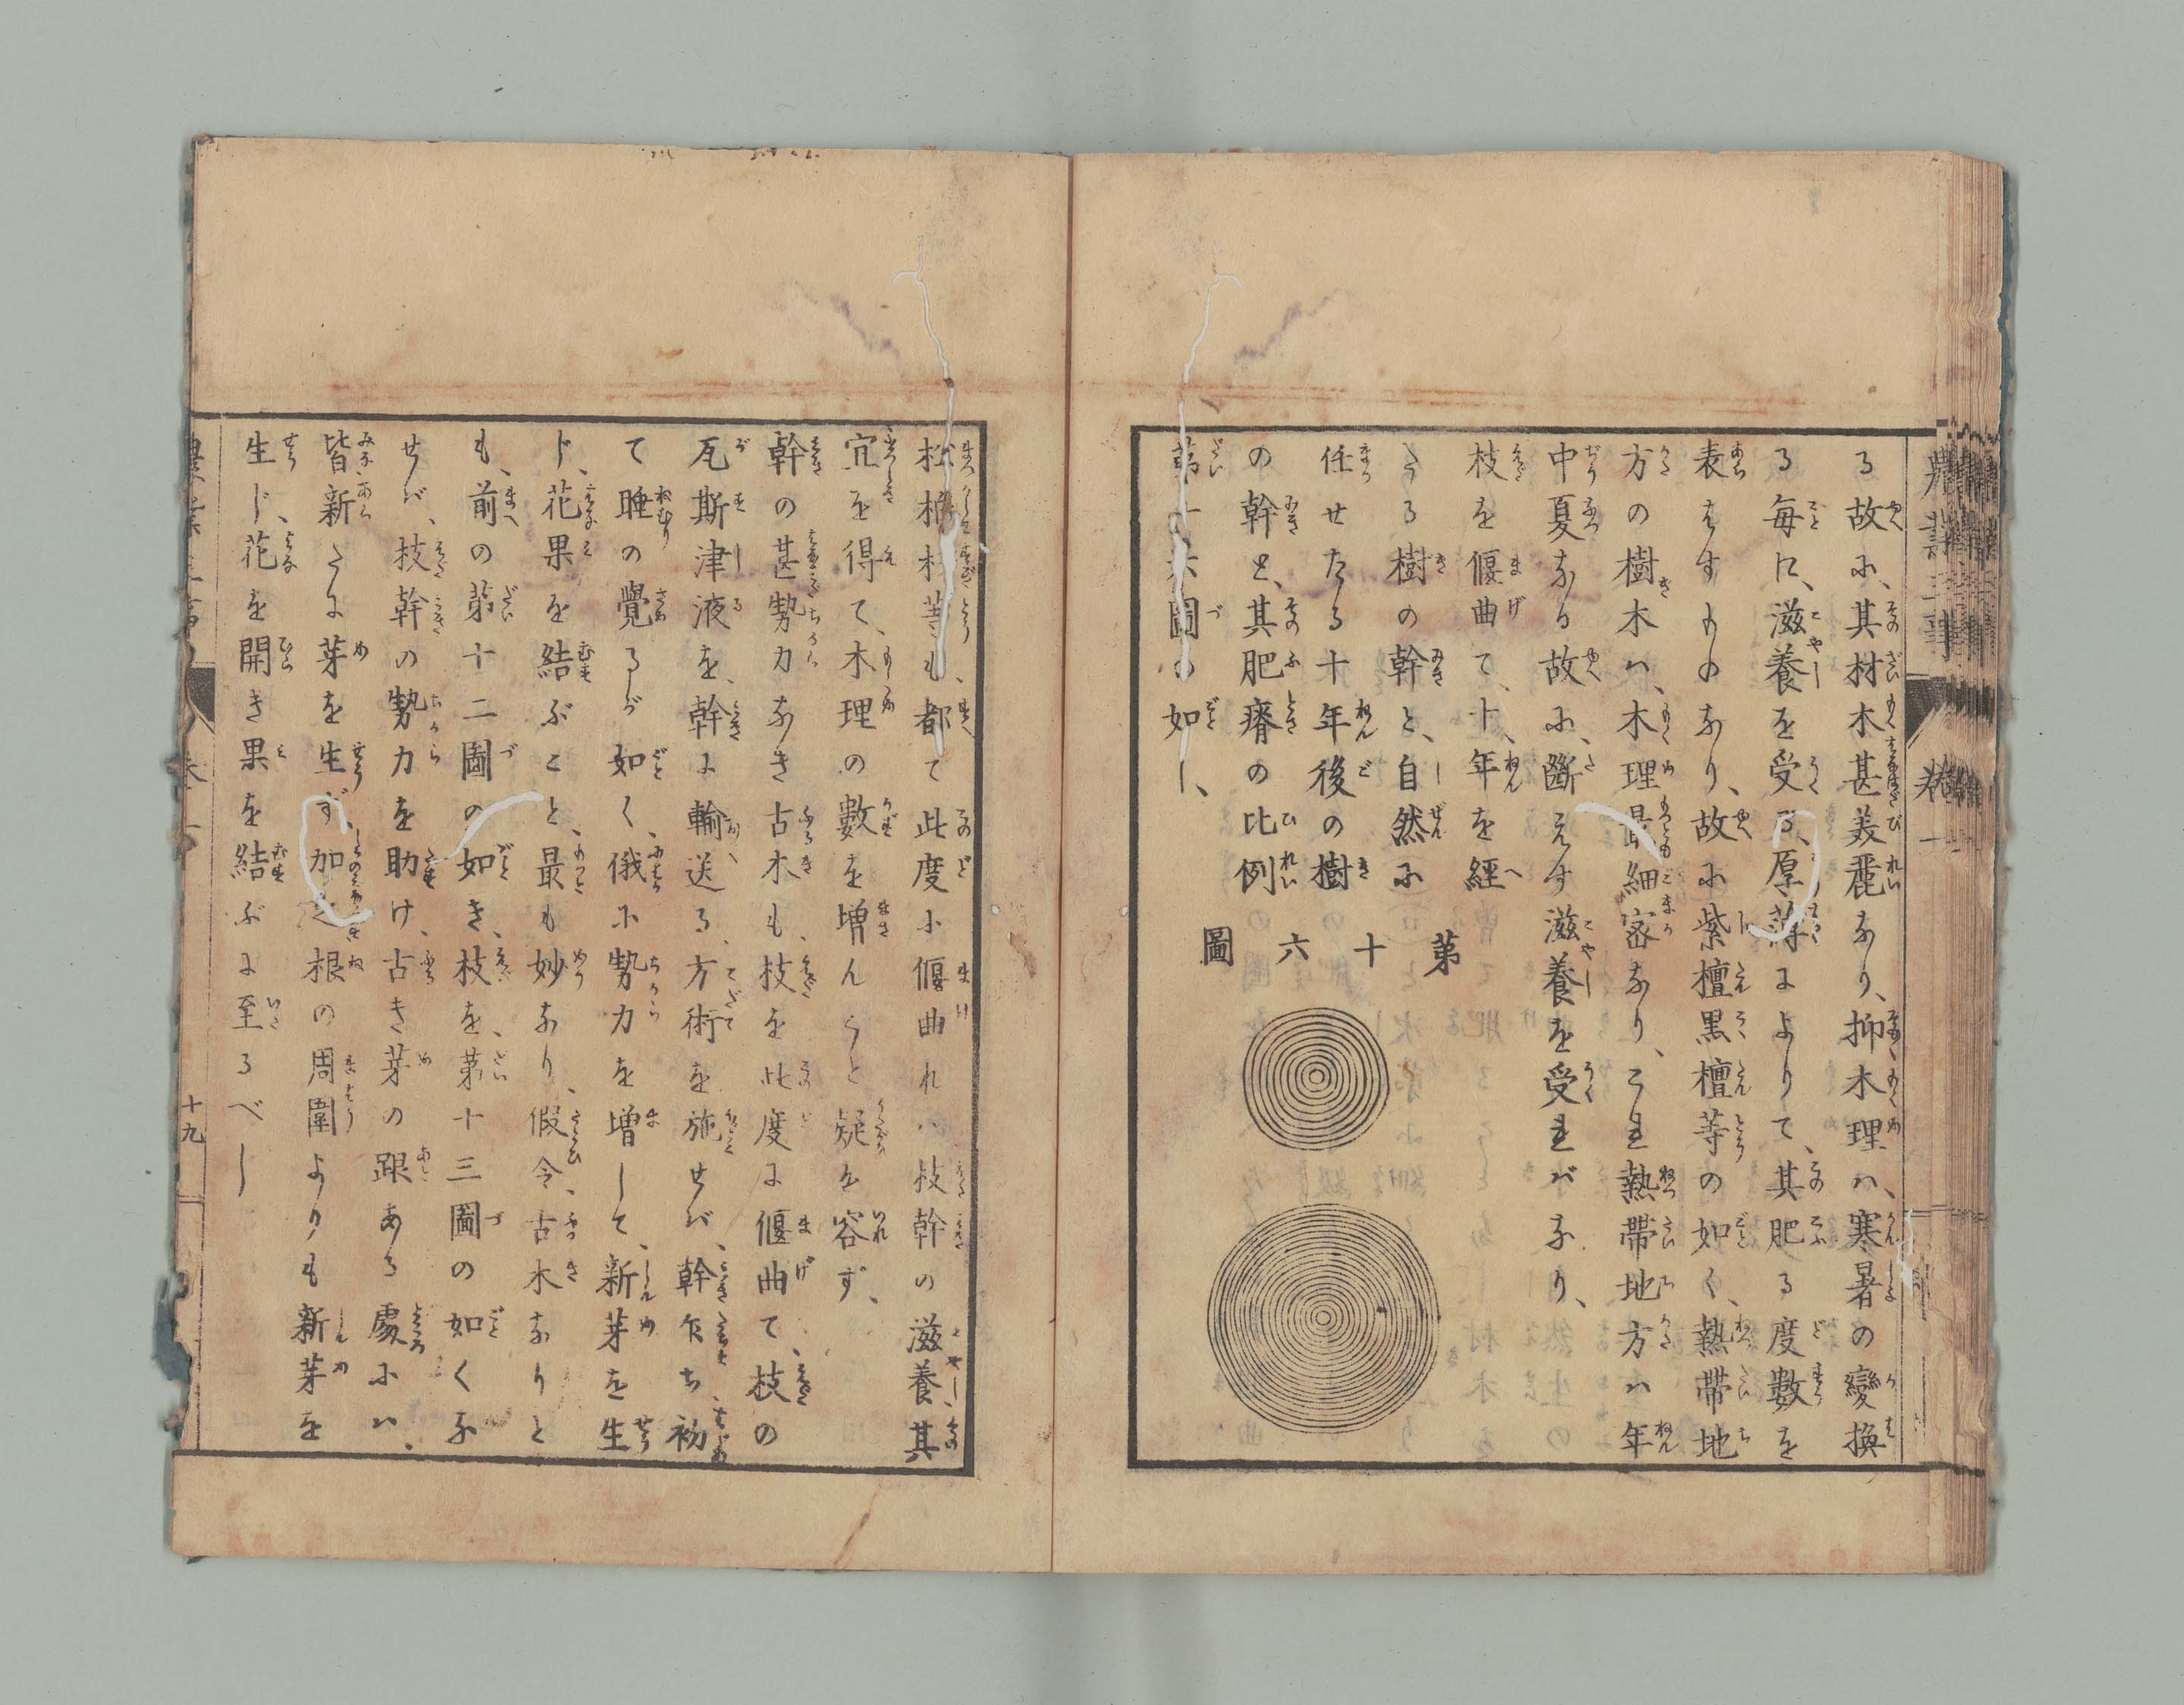 る故に、其材木甚美麗なり、抑木理ハ、寒暑の變換
る毎に、滋養を受る、厚薄によりて、其肥る度數を
表はすものなり、故に紫檀黒檀等の如く、熱帶地
方の樹木ハ、木理最細密なり、これ熱帶地方ハ年
中夏なる故に、斷えす滋養を受ればなり、
枝を偃曲て、十年を經
たる樹の幹と、自然に
任せたる十年後の樹
の幹と、其肥瘠の比例
第十六圖の如し、
第十六圖
松 杉等も、都て此度に偃曲れハ枝幹の滋養其
宜を得て、木理の數を増んこと疑を容ず、
幹の甚勢力なき古木も、枝を此度に偃曲て、枝の
瓦斯津液を、幹に輸送る、方術を施せば、幹乍ち、初
て睡の覺るが如く、俄に勢力を増して、新芽を生
じ、花果を結ぶこと、最も妙なり、假令古木なりと
も、前の第十二圖の如き、枝を、第十三圖の如くな
せば、枝幹の勢力を助け、古き芽の跟ある處にハ、
皆新たに芽を生ず、加之根の周圍よりも新芽を
生じ、花を開き果を結ぶに至るべし
十九